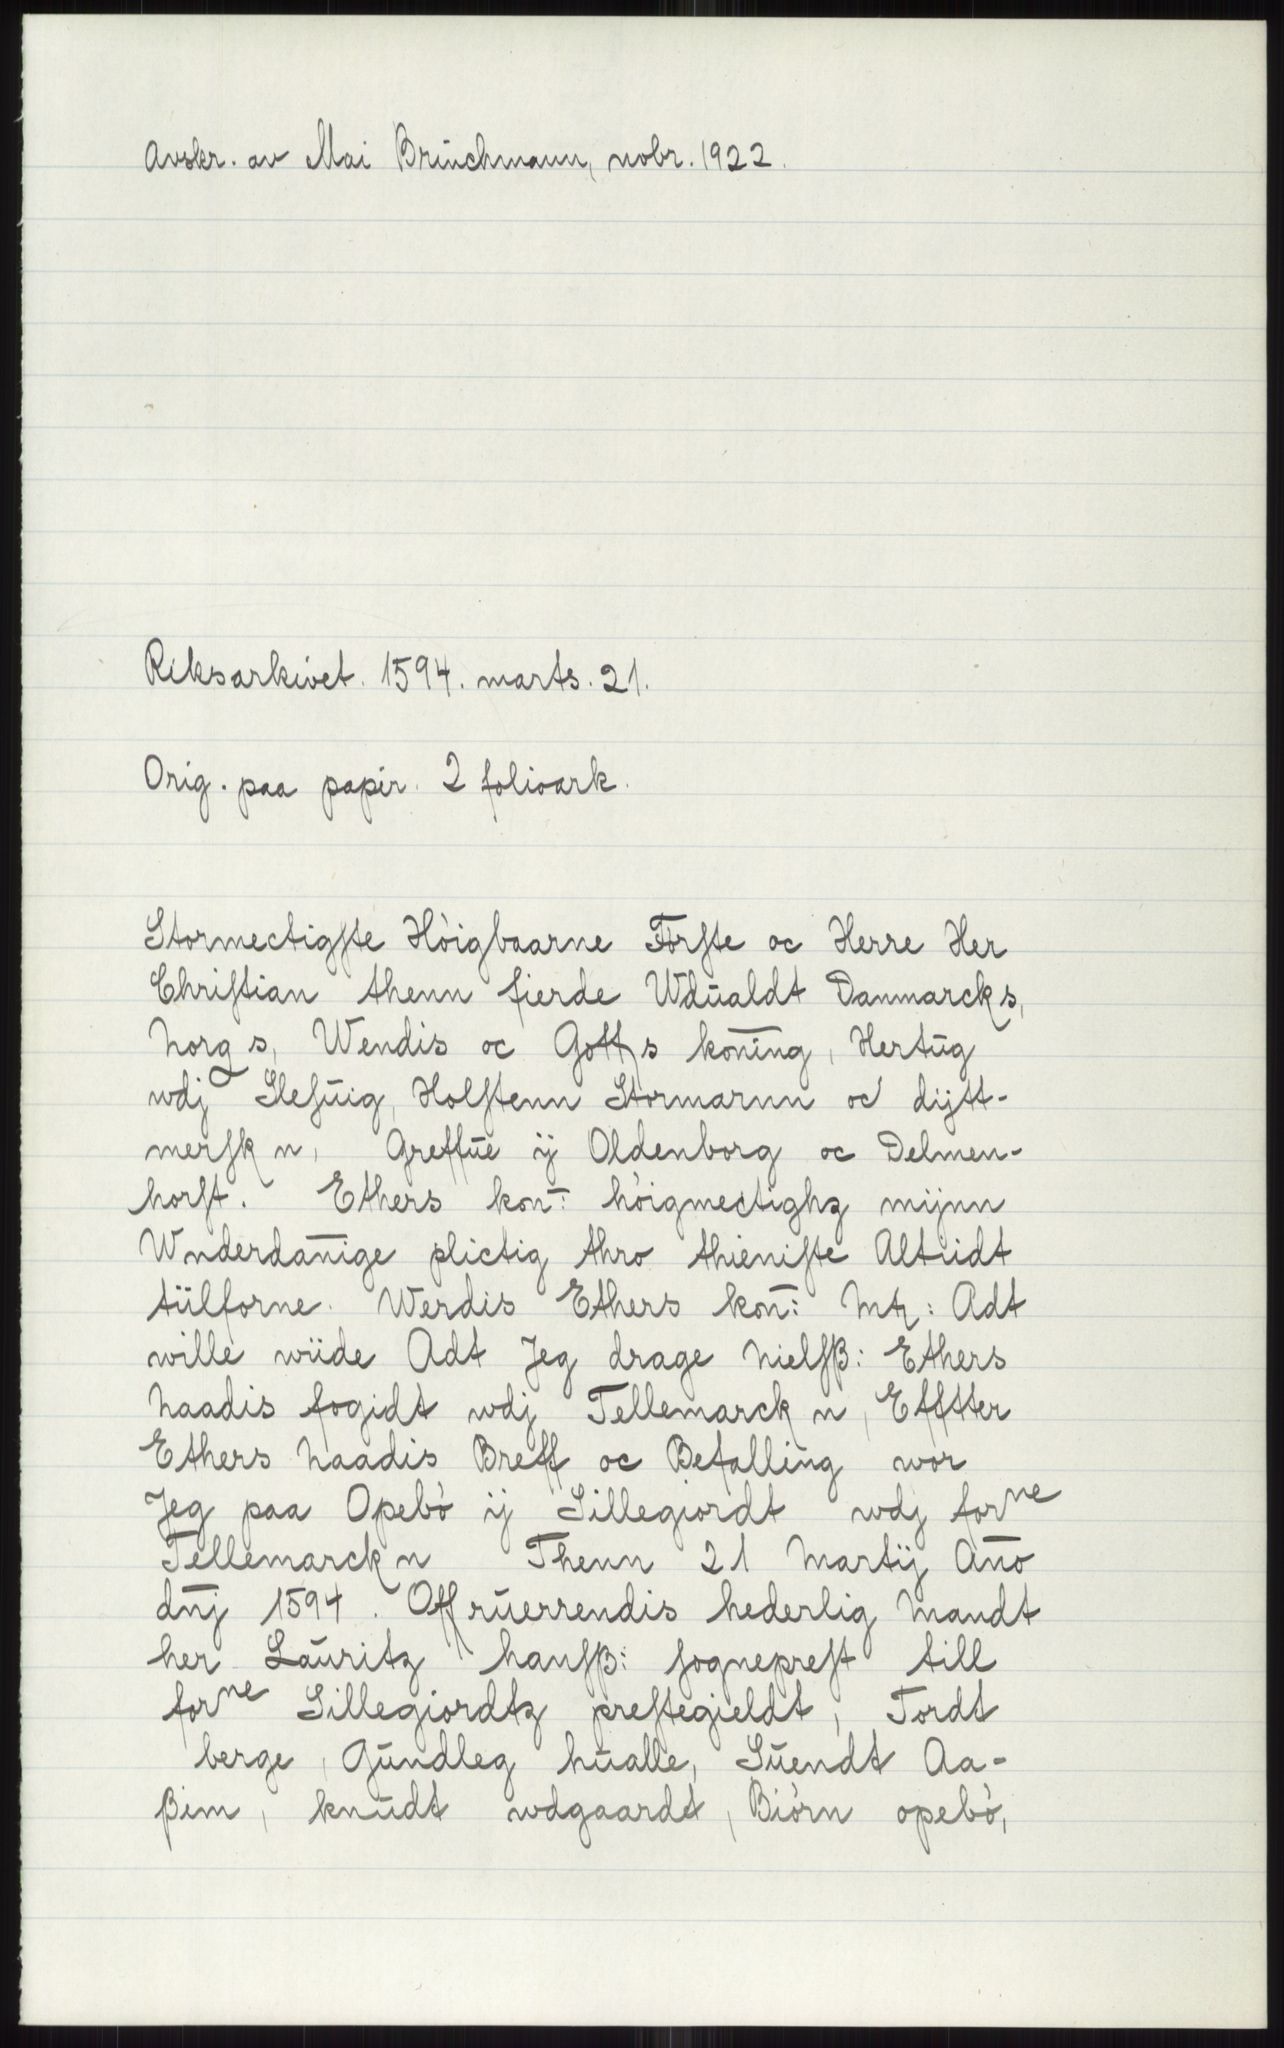 Avskr. av Mai Brüchmann, nobr. 1922.
Riksarkivet. 1594. marts. 21.
Orig. paa papir. 2 folioark.
Stormectigste Höigbaarne Förste oc Herre Her
Christian thenn fierde Wdualdt Danmarcks,
Norgs, Wendis oc Gotts koning, Hertug
wdj Slesuig, Holstenn Stormarnn oc dijtt-
merskn, Greffue ij Oldenborg oc Delmen-
horst. Ethers kon: höigmectighz mijnn
Wnderdanige plictig thro thieniste Altiidt
tiilforne. Werdis Ethers kon: Mtz: Adt
wille wiide Adt Jeg drage Nielsß: Ethers
Naadis fogidt wdj Tellemarckn, Effter
Ethers Naadis Breff oc Befalling wor
Jeg paa Opebö ij Sillegiordt wdj forne
Tellemarckn Thenn 21 Martij Ano
dnj 1594. Offruerrendis hederlig Mandt
her Lauritz hansß: sogneprest till
forne Sillegiordtz prestegieldt, Tordt
berge, Gundleg hualle, Suendt Aa-
ßim, knudt wdgaardt, Biörn opebö,